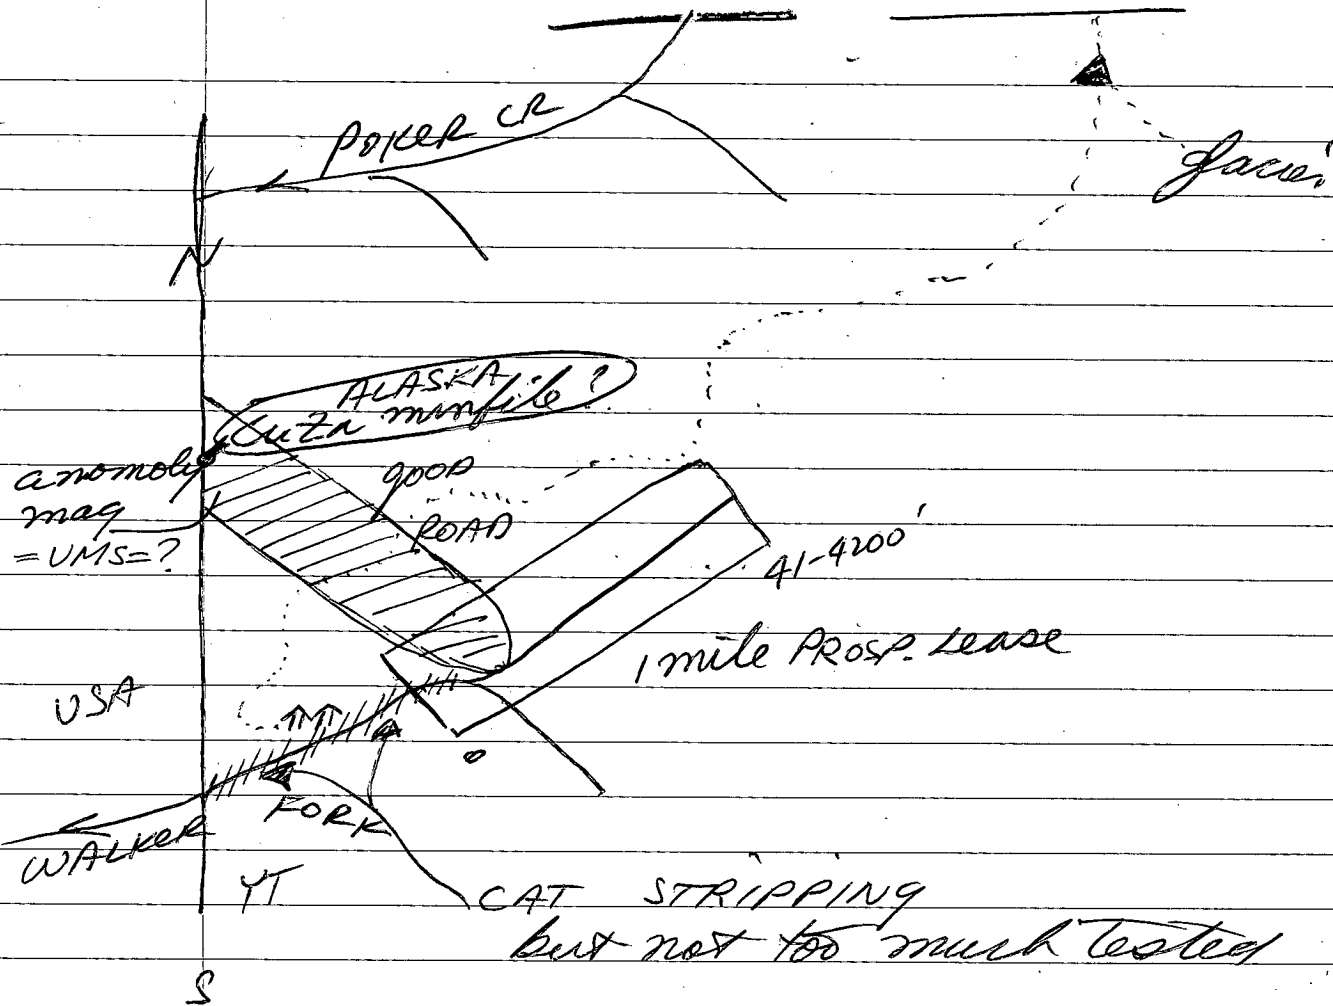 POKER CR
N
ALASKA
CuZn minfile?
anomoly
mag
=VMS=?
good
ROAD
41-4200'
1 mile PROSP. Lease
USA
FORK
WALKER
YT
CAT STRIPPING
but not too much tested
S